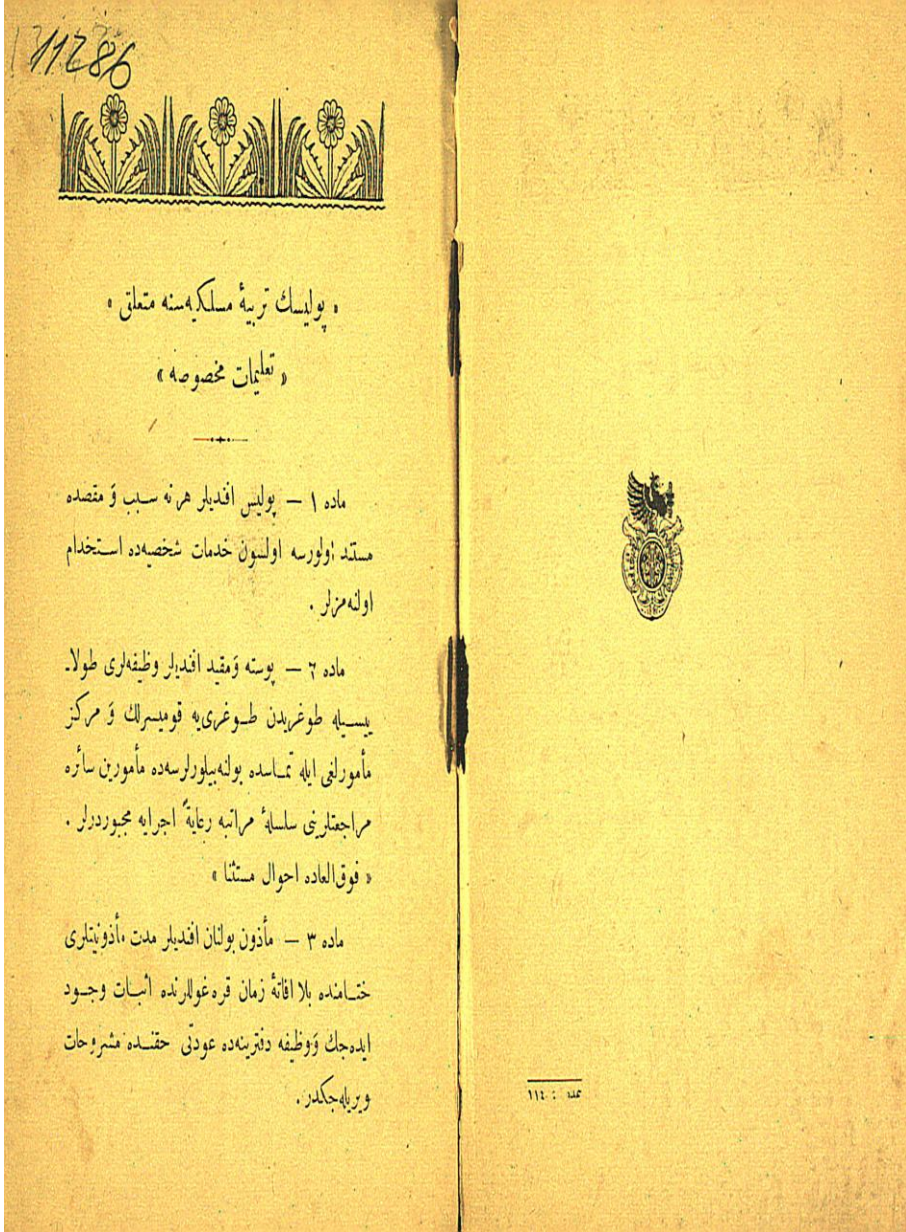 11286
« پولیسك تربیهٔ مسلکیه‌سنه متعلق »
« تعلیمات مخصوصه »
ماده ۱ — پولیس افندیلر هر نه سبب وَ مقصده
مستند اولورسه اولسون خدمات شخصیه‌ده استخدام
اولنه‌مزلر .
ماده ۲ — پوسته وَمقید افندیلر وظیفه‌لری طولا-
ییسیله طوغریدن طوغری‌یه قومیسرلك وَ مرکز
مأمورلغی ایله تماسده بولنه‌بیلورلرسه‌ده مأمورین سائره
مراجعتلرینی سلسلهٔ مراتبه رعایةً اجرایه مجبوردرلر .
« فوق‌العاده احوال مستثنا »
ماده ۳ — مأذون بولنان افندیلر مدت مأذونیتلری
ختامنده بلا افاتهٔ زمان قره‌غوللرنده اثبات وجود
ایده‌جك وَوظیفه دفترینه‌ده عودتی حقنده مشروحات
ویریله‌جکدر .
عدد : ١١٤٠